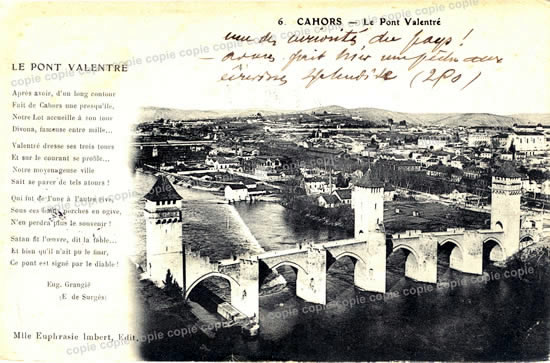 6. CAHORS — Le Pont Valentré
une des curiosités du pays!
avons fait hier une pêche aux
écrevisses splendide (280)
LE PONT VALENTRÉ
Après avoir, d'un long contour
Fait de Cahors une presqu'île,
Notre Lot accueille à son tour
Divona, fameuse entre mille...
Valentré dresse ses trois tours
Et sur le courant se profile...
Notre moyenageuse ville
Sait se parer de tels atours !
Qui fut de l'une à l'autre rive,
Sous ces longs porches en ogive,
N'en perdra plus le souvenir !
Satan fit l'œuvre, dit la fable...
Et bien qu'il n'ait pu le finir,
Ce pont est signé par le diable !
Eug. Grangié
(E de Surgès)
Mlle Euphrasie Imbert, Edit.
copie copie copie copie copie